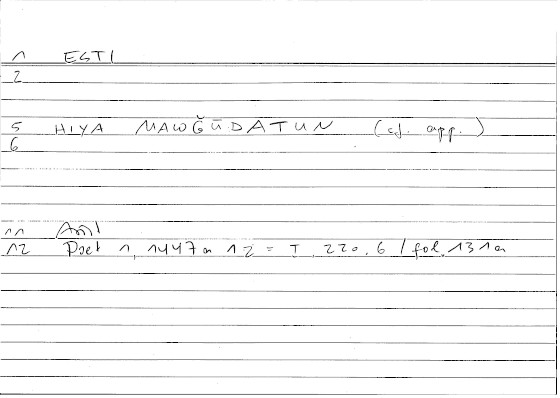 1 ESTI
2
5 HIYA MAWĞŪDATUN (cf. app.)
6
11 Arist
12 Poet 1, 1447a12 = T 220.6 / fol. 131a